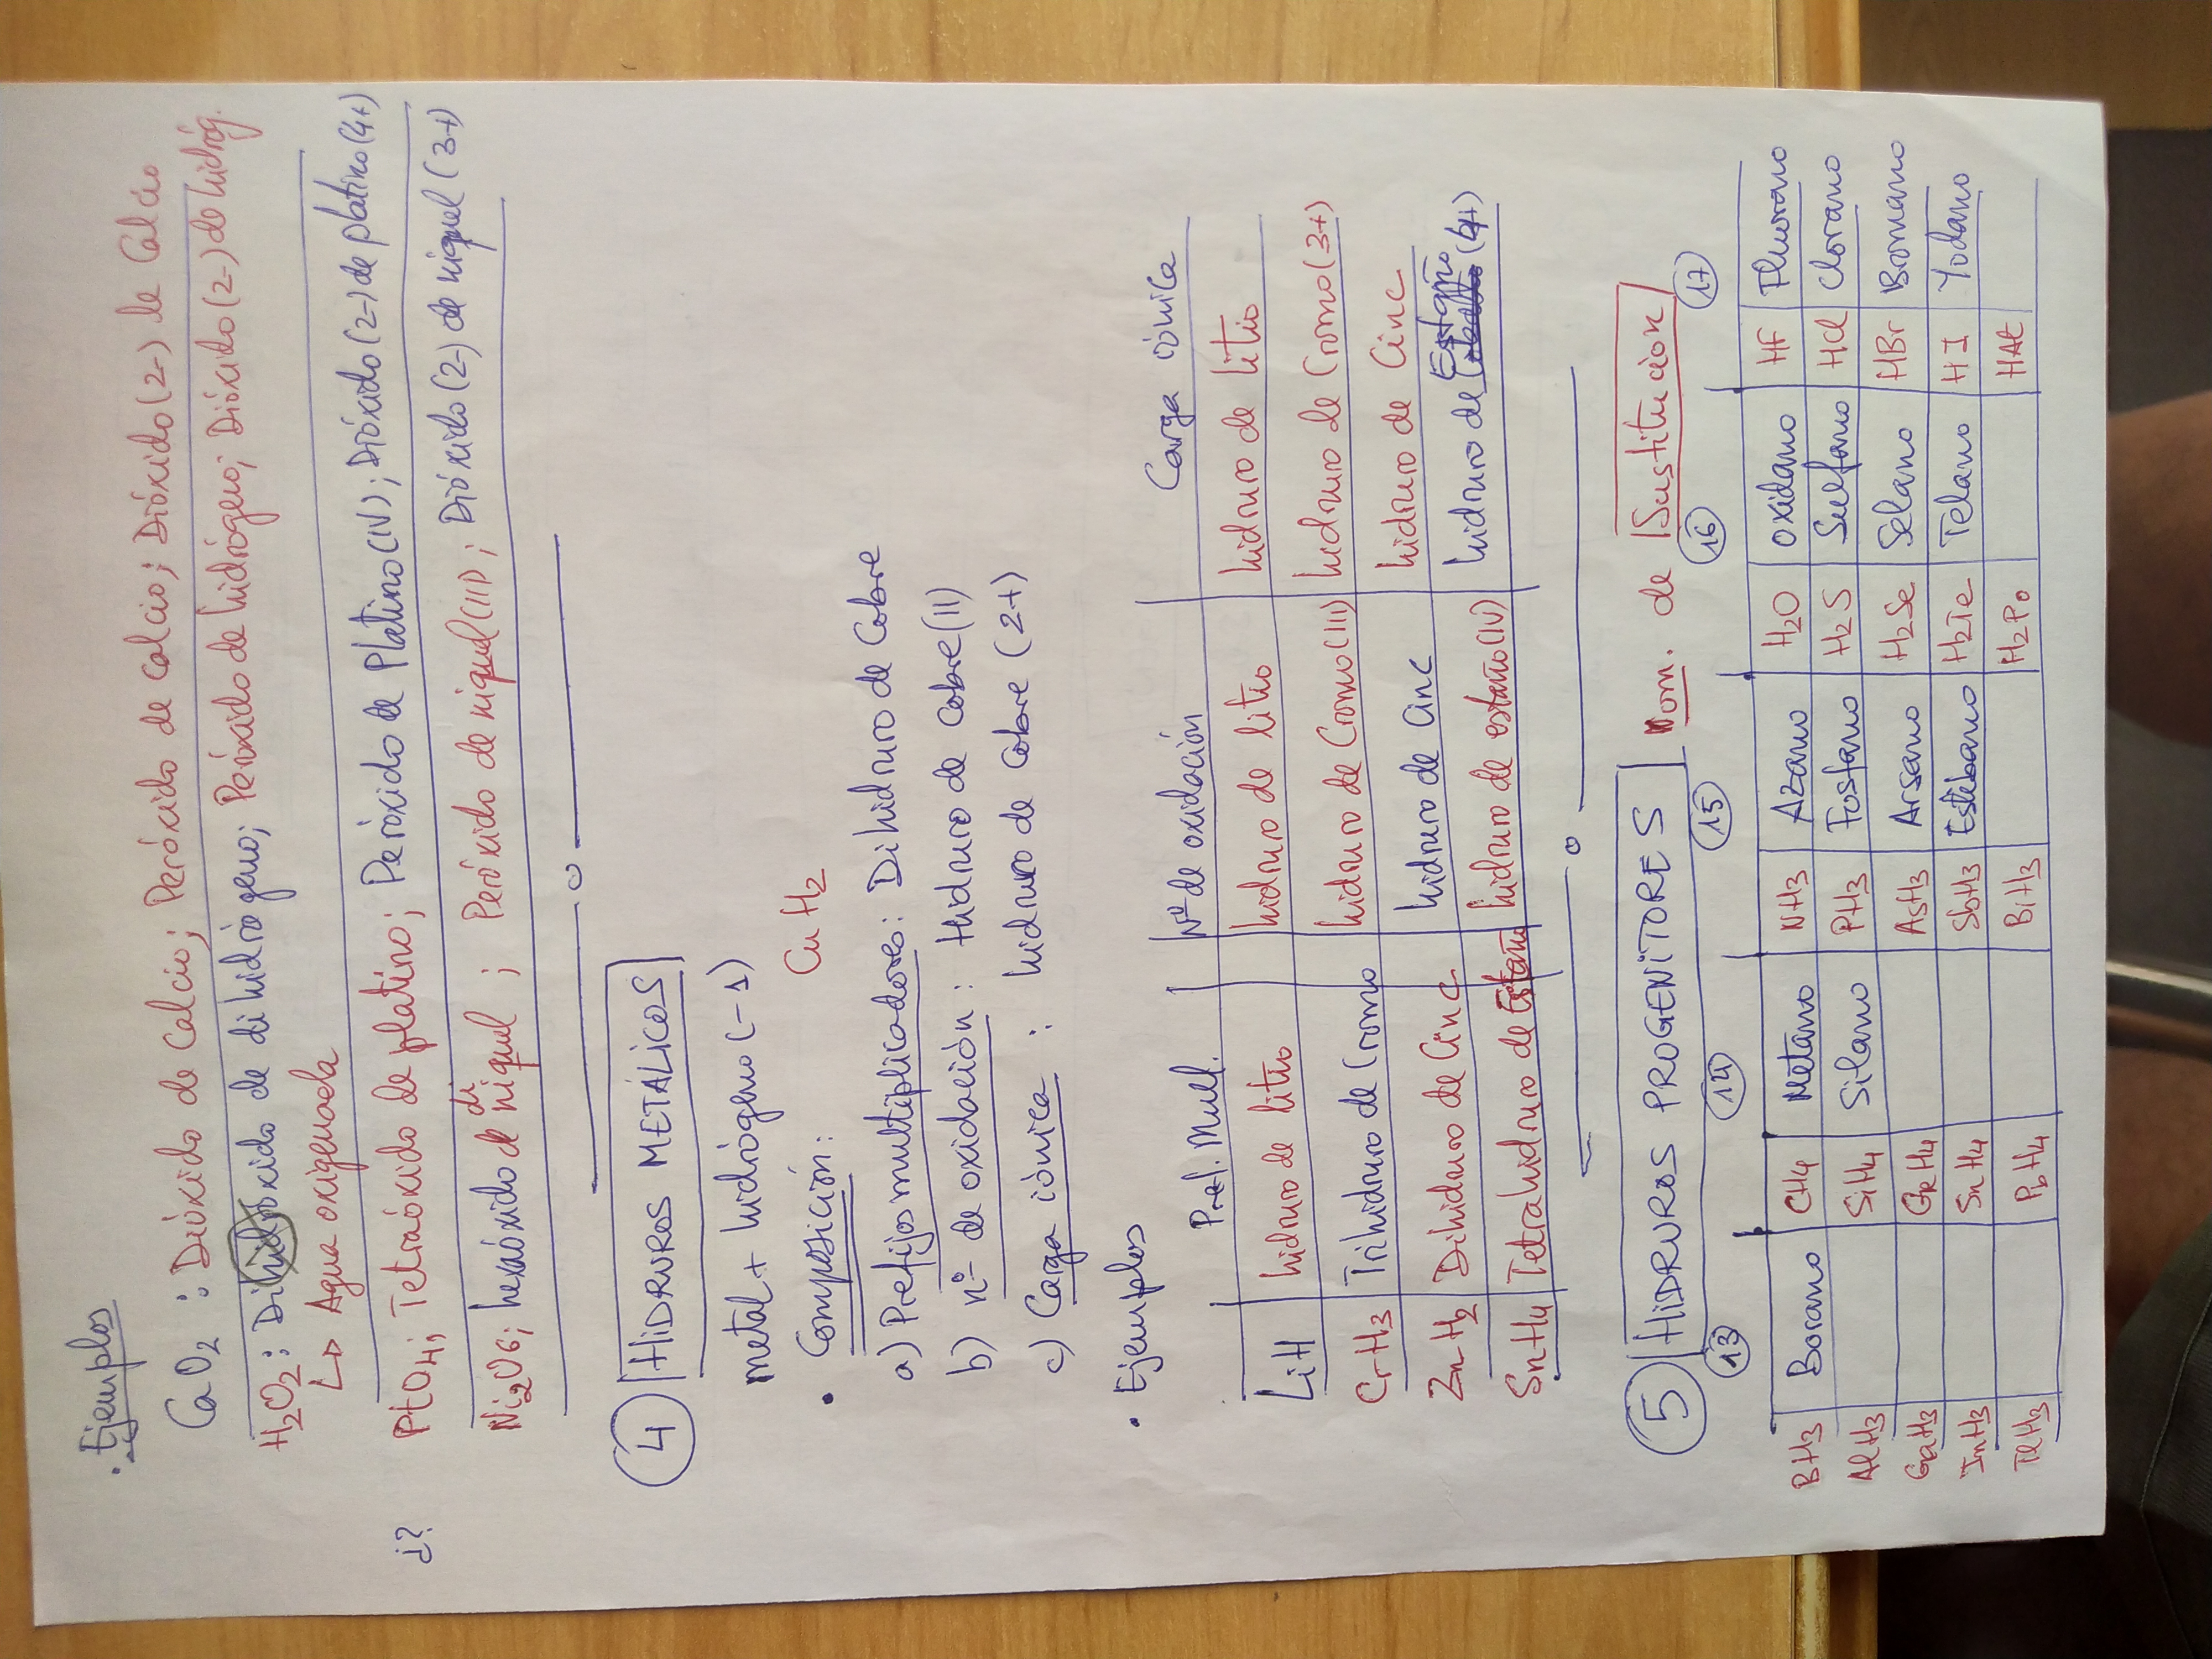 · Ejemplos
CaO2 : Dióxido de Calcio; Peróxido de Calcio; Dióxido (2-) de Calcio
H2O2: Dihidróxido de dihidrógeno; Peróxido de hidrógeno; Dióxido (2-) de hidróg.
↳ Agua oxigenada
¿? PtO4; Tetraóxido de platino; Peróxido de Platino (IV); Dióxido (2-) de platino (4+)
Ni2O6; hexaóxido de di niquel ; Peróxido de niquel (III) ; Dióxido (2-) de niquel (3+)
④ HIDRUROS METÁLICOS
metal + hidrógeno (-1)
· Composición: CuH2
a) Prefijos multiplicadores: Dihidruro de Cobre
b) nº de oxidación : Hidruro de Cobre (II)
c) Carga iónica : hidruro de Cobre (2+)
· Ejemplos
Pref. Mul. Nº de oxidación Carga iónica
LiH hidruro de litio hidruro de litio hidruro de litio
CrH3 Trihidruro de Cromo hidruro de Cromo (III) hidruro de Cromo (3+)
ZnH2 Dihidruro de Cinc hidruro de Cinc hidruro de Cinc
SnH4 Tetrahidruro de Estaño hidruro de estaño (IV) hidruro de Estaño (4+)
⑤ HIDRUROS PROGENITORES Nom. de Sustitución
13 14 15 16 17
BH3 Borano CH4 Metano NH3 Azano H2O Oxidano HF Fluorano
AlH3 SiH4 Silano PH3 Fosfano H2S Sulfano HCl Clorano
GaH3 GeH4 AsH3 Arsano H2Se Selano HBr Bromano
InH3 SnH4 SbH3 Estibano H2Te Telano HI Yodano
TlH3 PbH4 BiH3 H2Po HAt